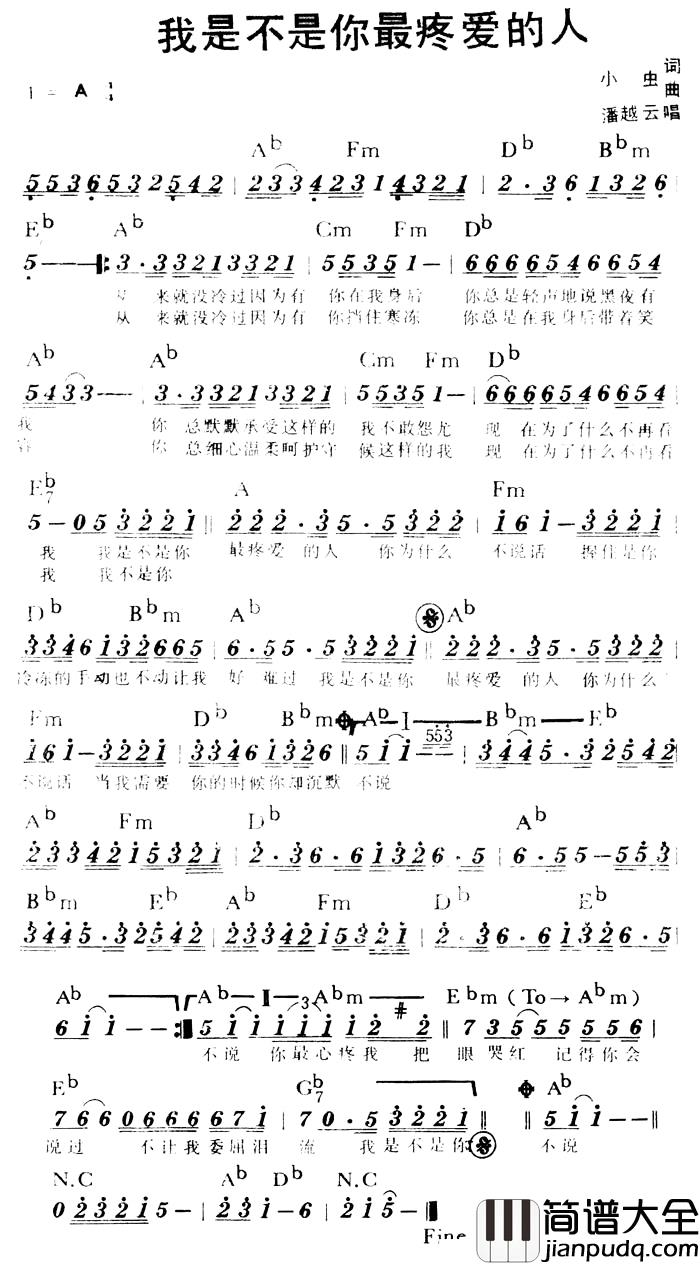 我是不是你最疼爱的人
小 虫 词
曲
潘越云唱
1 = A
A♭ Fm D♭ B♭m
5536532542 | 2334231 4321 | 2·36 1326
E♭ A♭ Cm Fm D♭
5——— 3·33213321 | 55351— | 6666546654
来就没冷过因为有 你在我身后 你总是轻声地说黑夜有
从 来就没冷过因为有 你挡住寒冻 你总是在我身后带着笑
A♭ A♭ Cm Fm D♭
5433—— | 3·33213321 | 55351— | 6666546654
我 你 总默默承受这样的 我不敢怨尤 现 在为了什么不再看
容 你 总细心温柔呵护守 候这样的我 现 在为了什么不再看
E♭7 A Fm
5—053221 || 222·35·5322 | 161—3221
我 我是不是你 最疼爱 的人 你为什么 不说话 握住是你
我 我不是你
D♭ B♭m A♭ A♭
3346132665 | 6·55·53221 || 222·35·5322
冷冻的手动也不动让我 好 难过 我是不是你 最疼爱 的人 你为什么
Fm D♭ B♭m A♭ I B♭m E♭
161—3221 | 33461326 || 511— 553 | 3445·32542
不说话 当我需要 你的时候你却沉默 不说
A♭ Fm D♭ A♭
2334215321 | 2·36·61326·5 | 6·55—553
B♭m E♭ A♭ Fm D♭ E♭
3445·32542 | 2334215321 | 2·36·61326·5
A♭ A♭ I 3 A♭m E♭m (To→A♭m)
611—— 51111112 #2 | 73555556
不说 你最心疼我 把 眼哭红 记得你会
E♭ G♭7 A♭
7660666671 | 70·53221 || 511——||
说过 不让我委屈泪 流 我是不是你 不说
N.C A♭ D♭ N.C
023215— | 231—6 | 215—
Fine
简谱大全
jianpudq.com